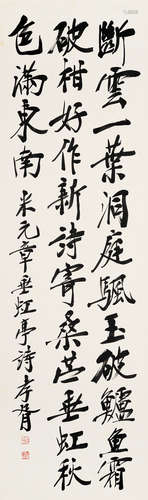 斷雲一葉洞庭颿玉破鱸魚霜
破柑好作新詩寄桑苎垂虹秋
色滿東南米元章垂虹亭詩孝胥